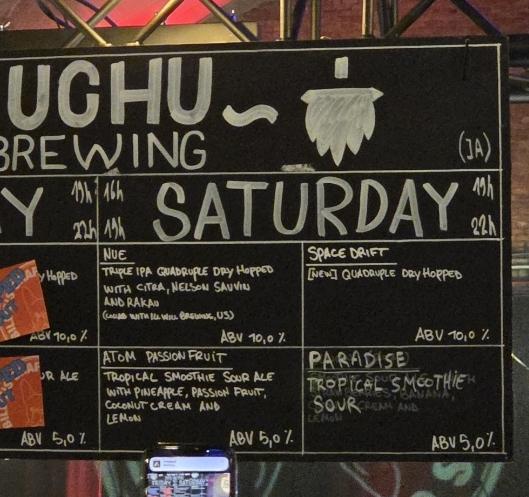 UCHU
BREWING
(JA)
Y 19h 22h
16h 19h SATURDAY 19h 22h
Y HOPPED
ABV 10,0 %
NUE
TRIPLE IPA QUADRUPLE DRY HOPPED
WITH CITRA, NELSON SAUVIN
AND RAKAU
(COLLAB WITH ILL WILL BREWING, US)
ABV 10,0 %
SPACE DRIFT
[NEW] QUADRUPLE DRY HOPPED
ABV 10,0 %
UR ALE
ABV 5,0 %
ATOM PASSION FRUIT
TROPICAL SMOOTHIE SOUR ALE
WITH PINEAPPLE, PASSION FRUIT,
COCONUT CREAM AND
LEMON
ABV 5,0 %
PARADISE
TROPICAL SMOOTHIE
SOUR
BANANA,
CREAM AND
LEMON
ABV 5,0 %